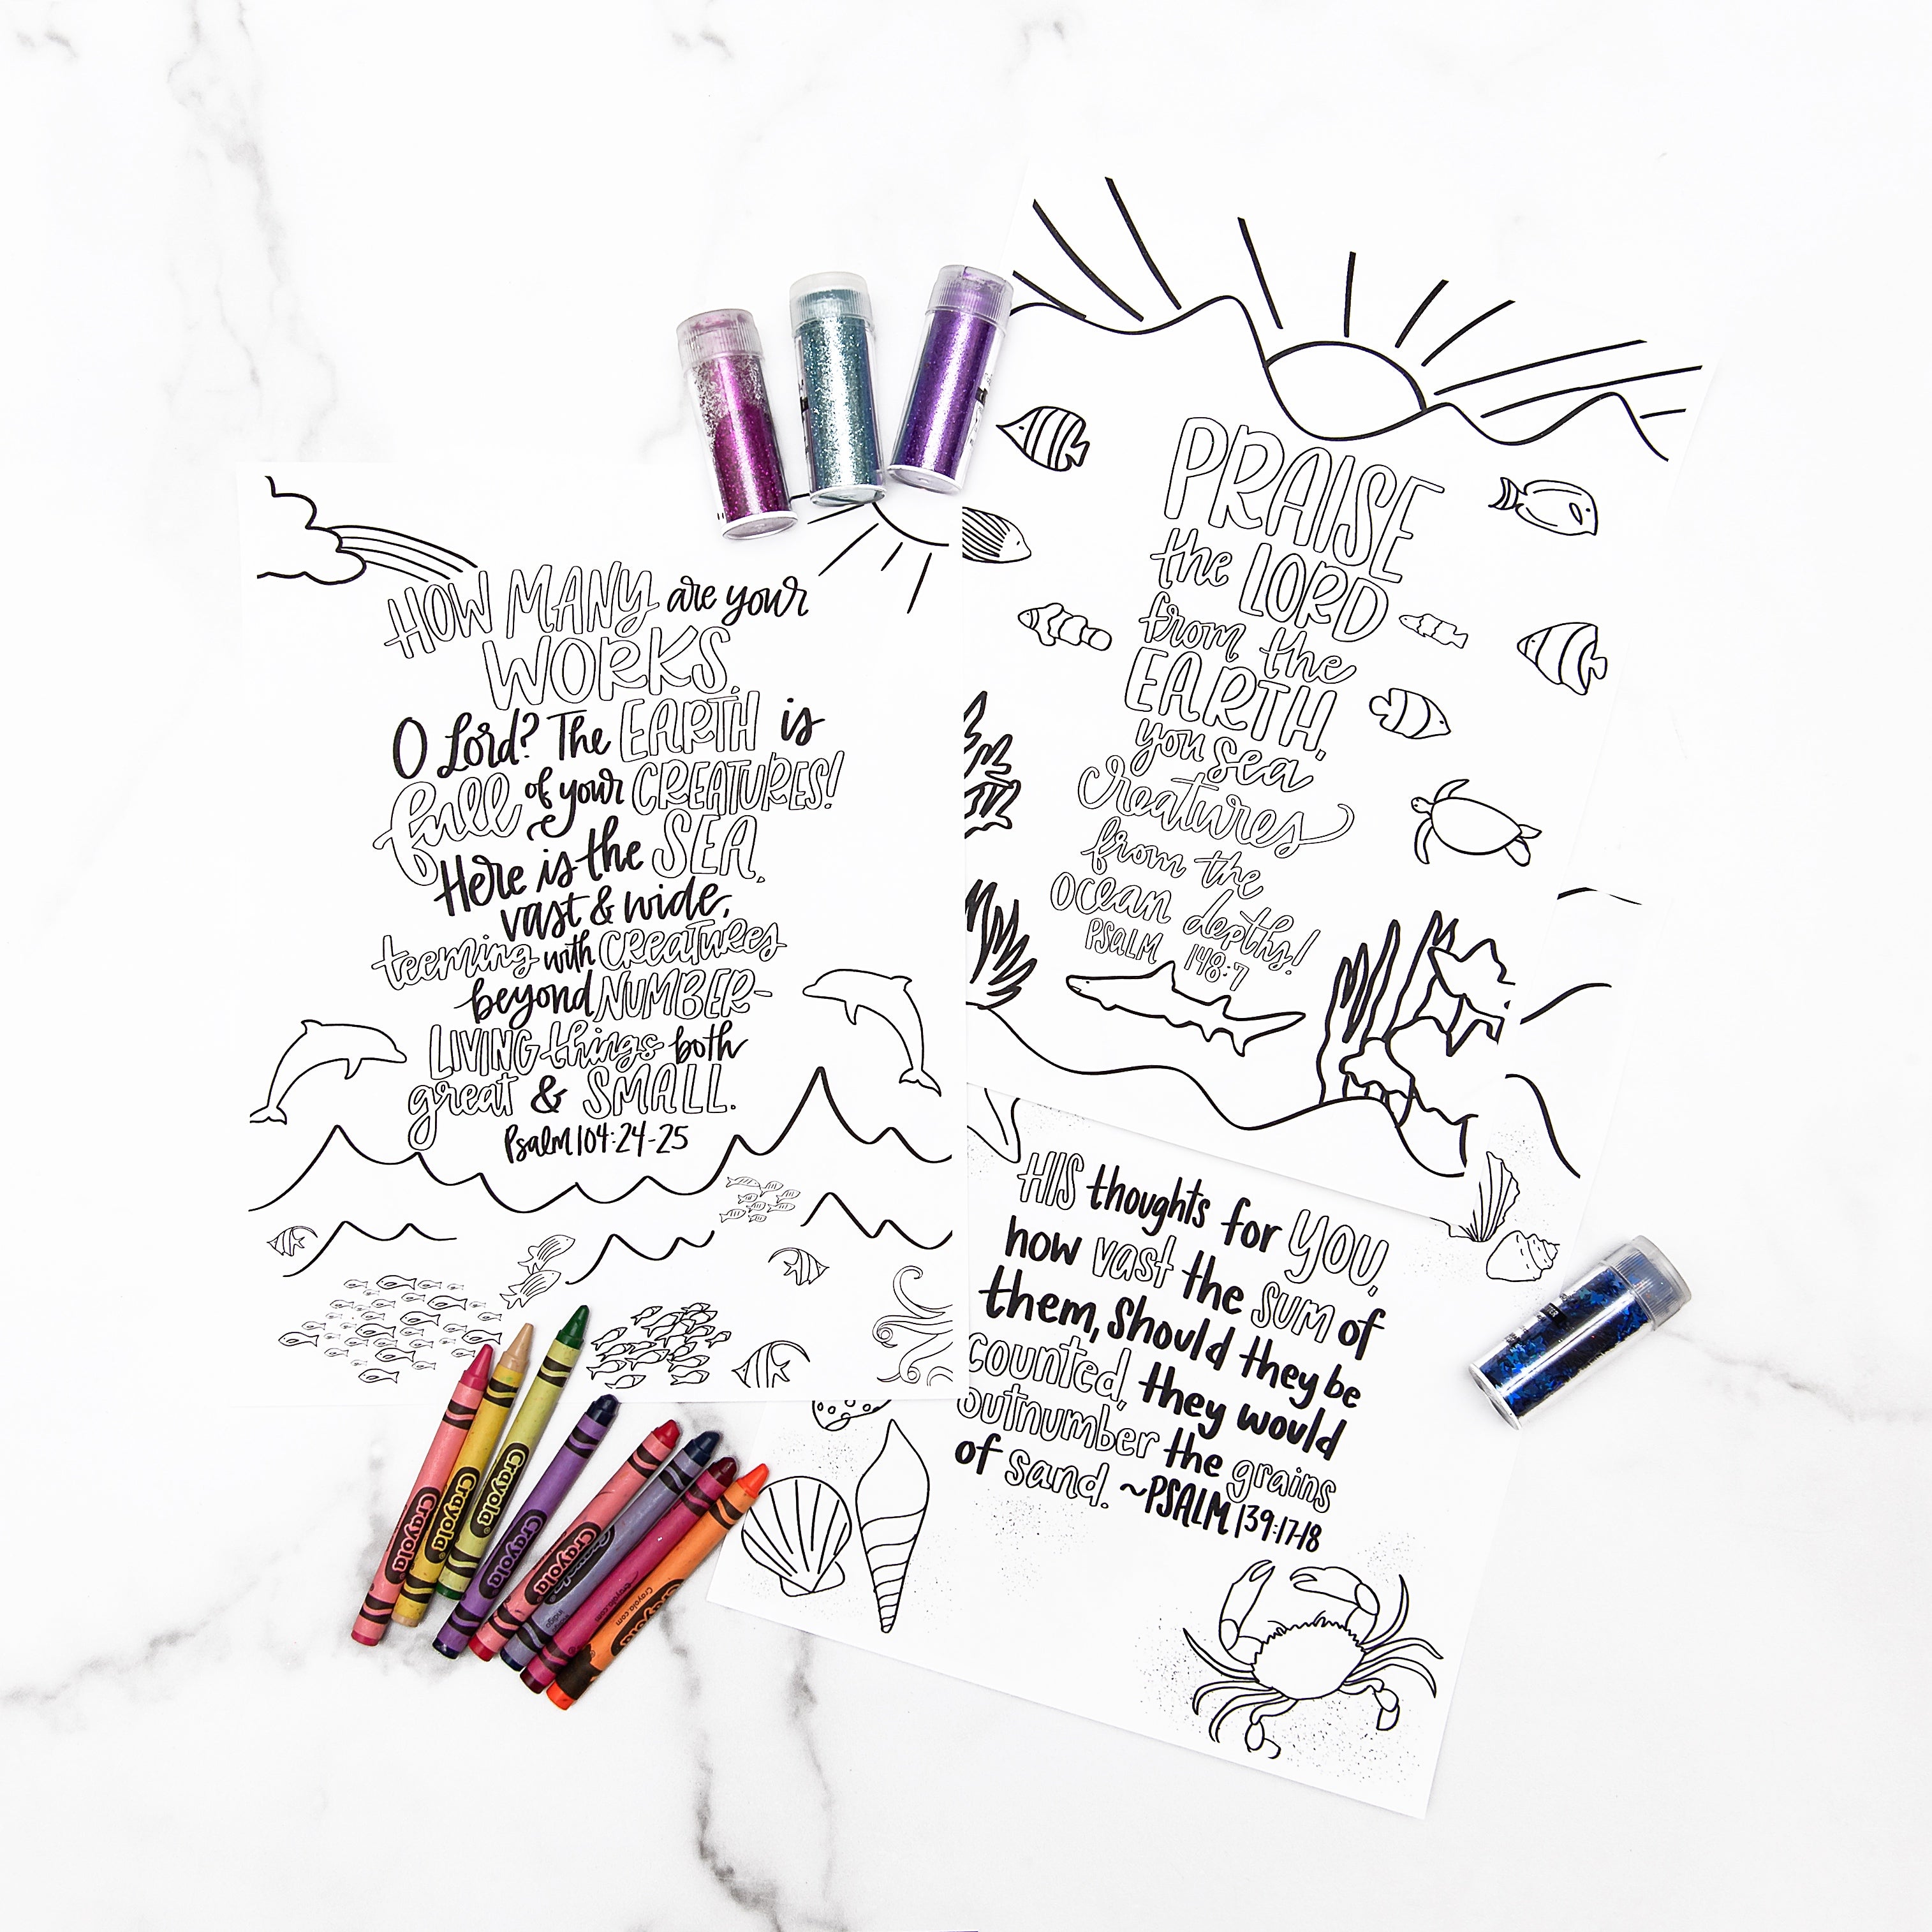 HOW MANY are your
WORKS,
O Lord? The EARTH is
full of your CREATURES!
Here is the SEA,
vast & wide,
teeming with CREATURES
beyond NUMBER-
LIVING things both
great & SMALL.
Psalm 104:24-25
PRAISE
the LORD
from the
EARTH,
you sea
creatures
from the
ocean depths!
PSALM 148:7
HIS thoughts for YOU,
how vast the SUM of
them, Should they be
counted, they would
outnumber the grains
of sand. ~PSALM 139:17-18
Crayola
Crayola
Crayola
Crayola
Crayola
indigo
Crayola.com
Crayola.com
Crayola